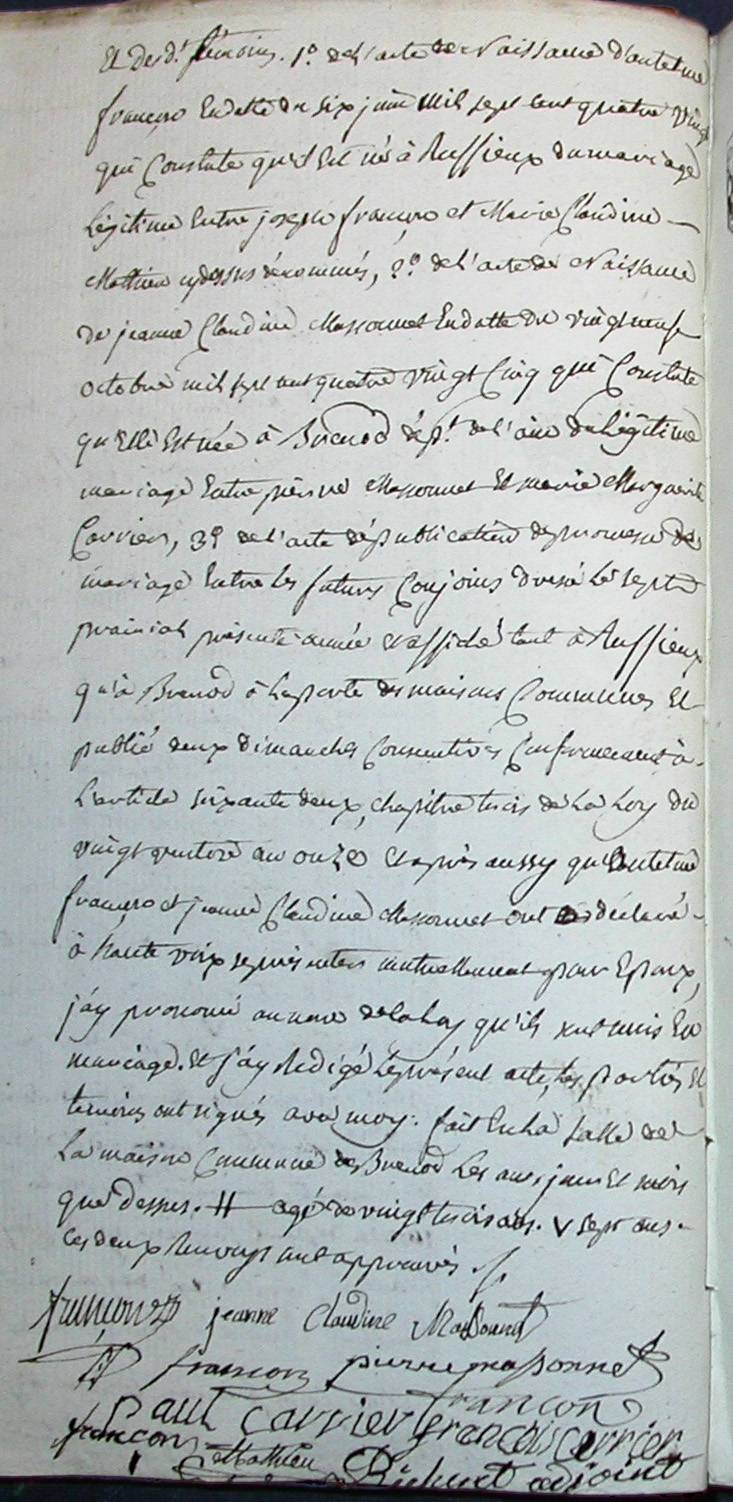 Et des d.ts témoins. 1.o de l'acte de Naissance d'antelme
françon En datte du six juin mil sept cent quatre vingt
qui Constate qu'il Est né à Ruffieux du mariage
Légitime Entre joseph françon et Marie Claudine —
Mathieu cydessus dénommés, 2.o de l'acte de Naissance
de jeanne Claudine Massonnet En datte du vingt neuf
octobre mil sept cent quatre vingt Cinq qui Constate
qu'Elle Est née à Brenod dép.t de l'ain du Légitime
mariage Entre pierre Massonnet Et marie Marguerite
Carrier, 3.o de l'acte de publication de promesse de
mariage Entre les futurs Conjoins dressé Le sept
prairial présente année et affiché tant à Ruffieux
qu'à Brenod à La porte des maisons Communes Et
publié deux dimanches Consecutives Conformement à
L'article soixante deux, chapitre trois de La Loy du
vingt ventose an onze Et après aussy qu'antelme
françon et jeanne Claudine Massonnet ont déclaré
à haute voix se prendre mutuellement pour Epoux,
j'ay prononcé au nom de la Loy qu'ils sont unis En
mariage. Et j'ay Redigé Le présent acte, Les parties Et
temoins ont signés avec moy. fait En La salle de
La maison Commune de Brenod Les an, jour Et mois
que dessus. # agé de vingt trois ans. V sept ans.
Ces deux Renvoys sont approuvés
françon jeanne Claudine Massonnet
françon pierre massonnet
françon
Paul Carrier françois Carrier
françon Mathieu adjoint